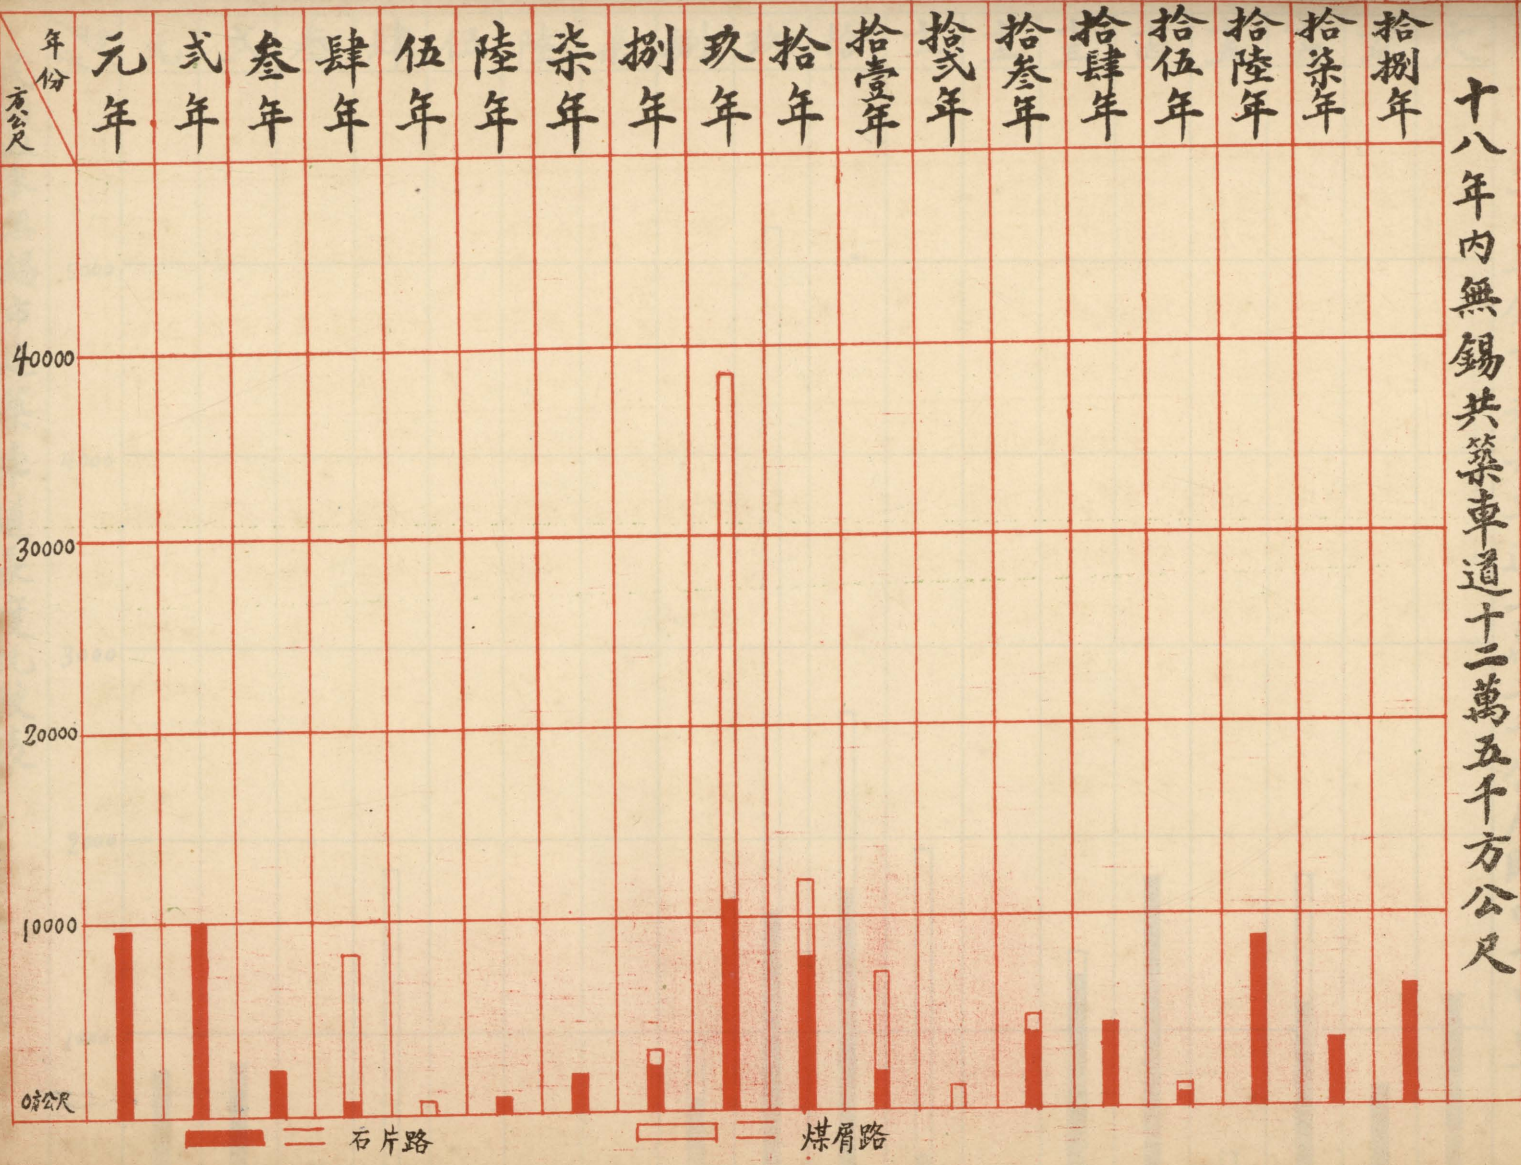 十八年内無錫共築車道十二萬五千方公尺
年份
方公尺
元年
弍年
叁年
肆年
伍年
陸年
柒年
捌年
玖年
拾年
拾壹年
拾弍年
拾叁年
拾肆年
拾伍年
拾陸年
拾柒年
拾捌年
40000
30000
20000
10000
0方公尺
石片路
煤屑路